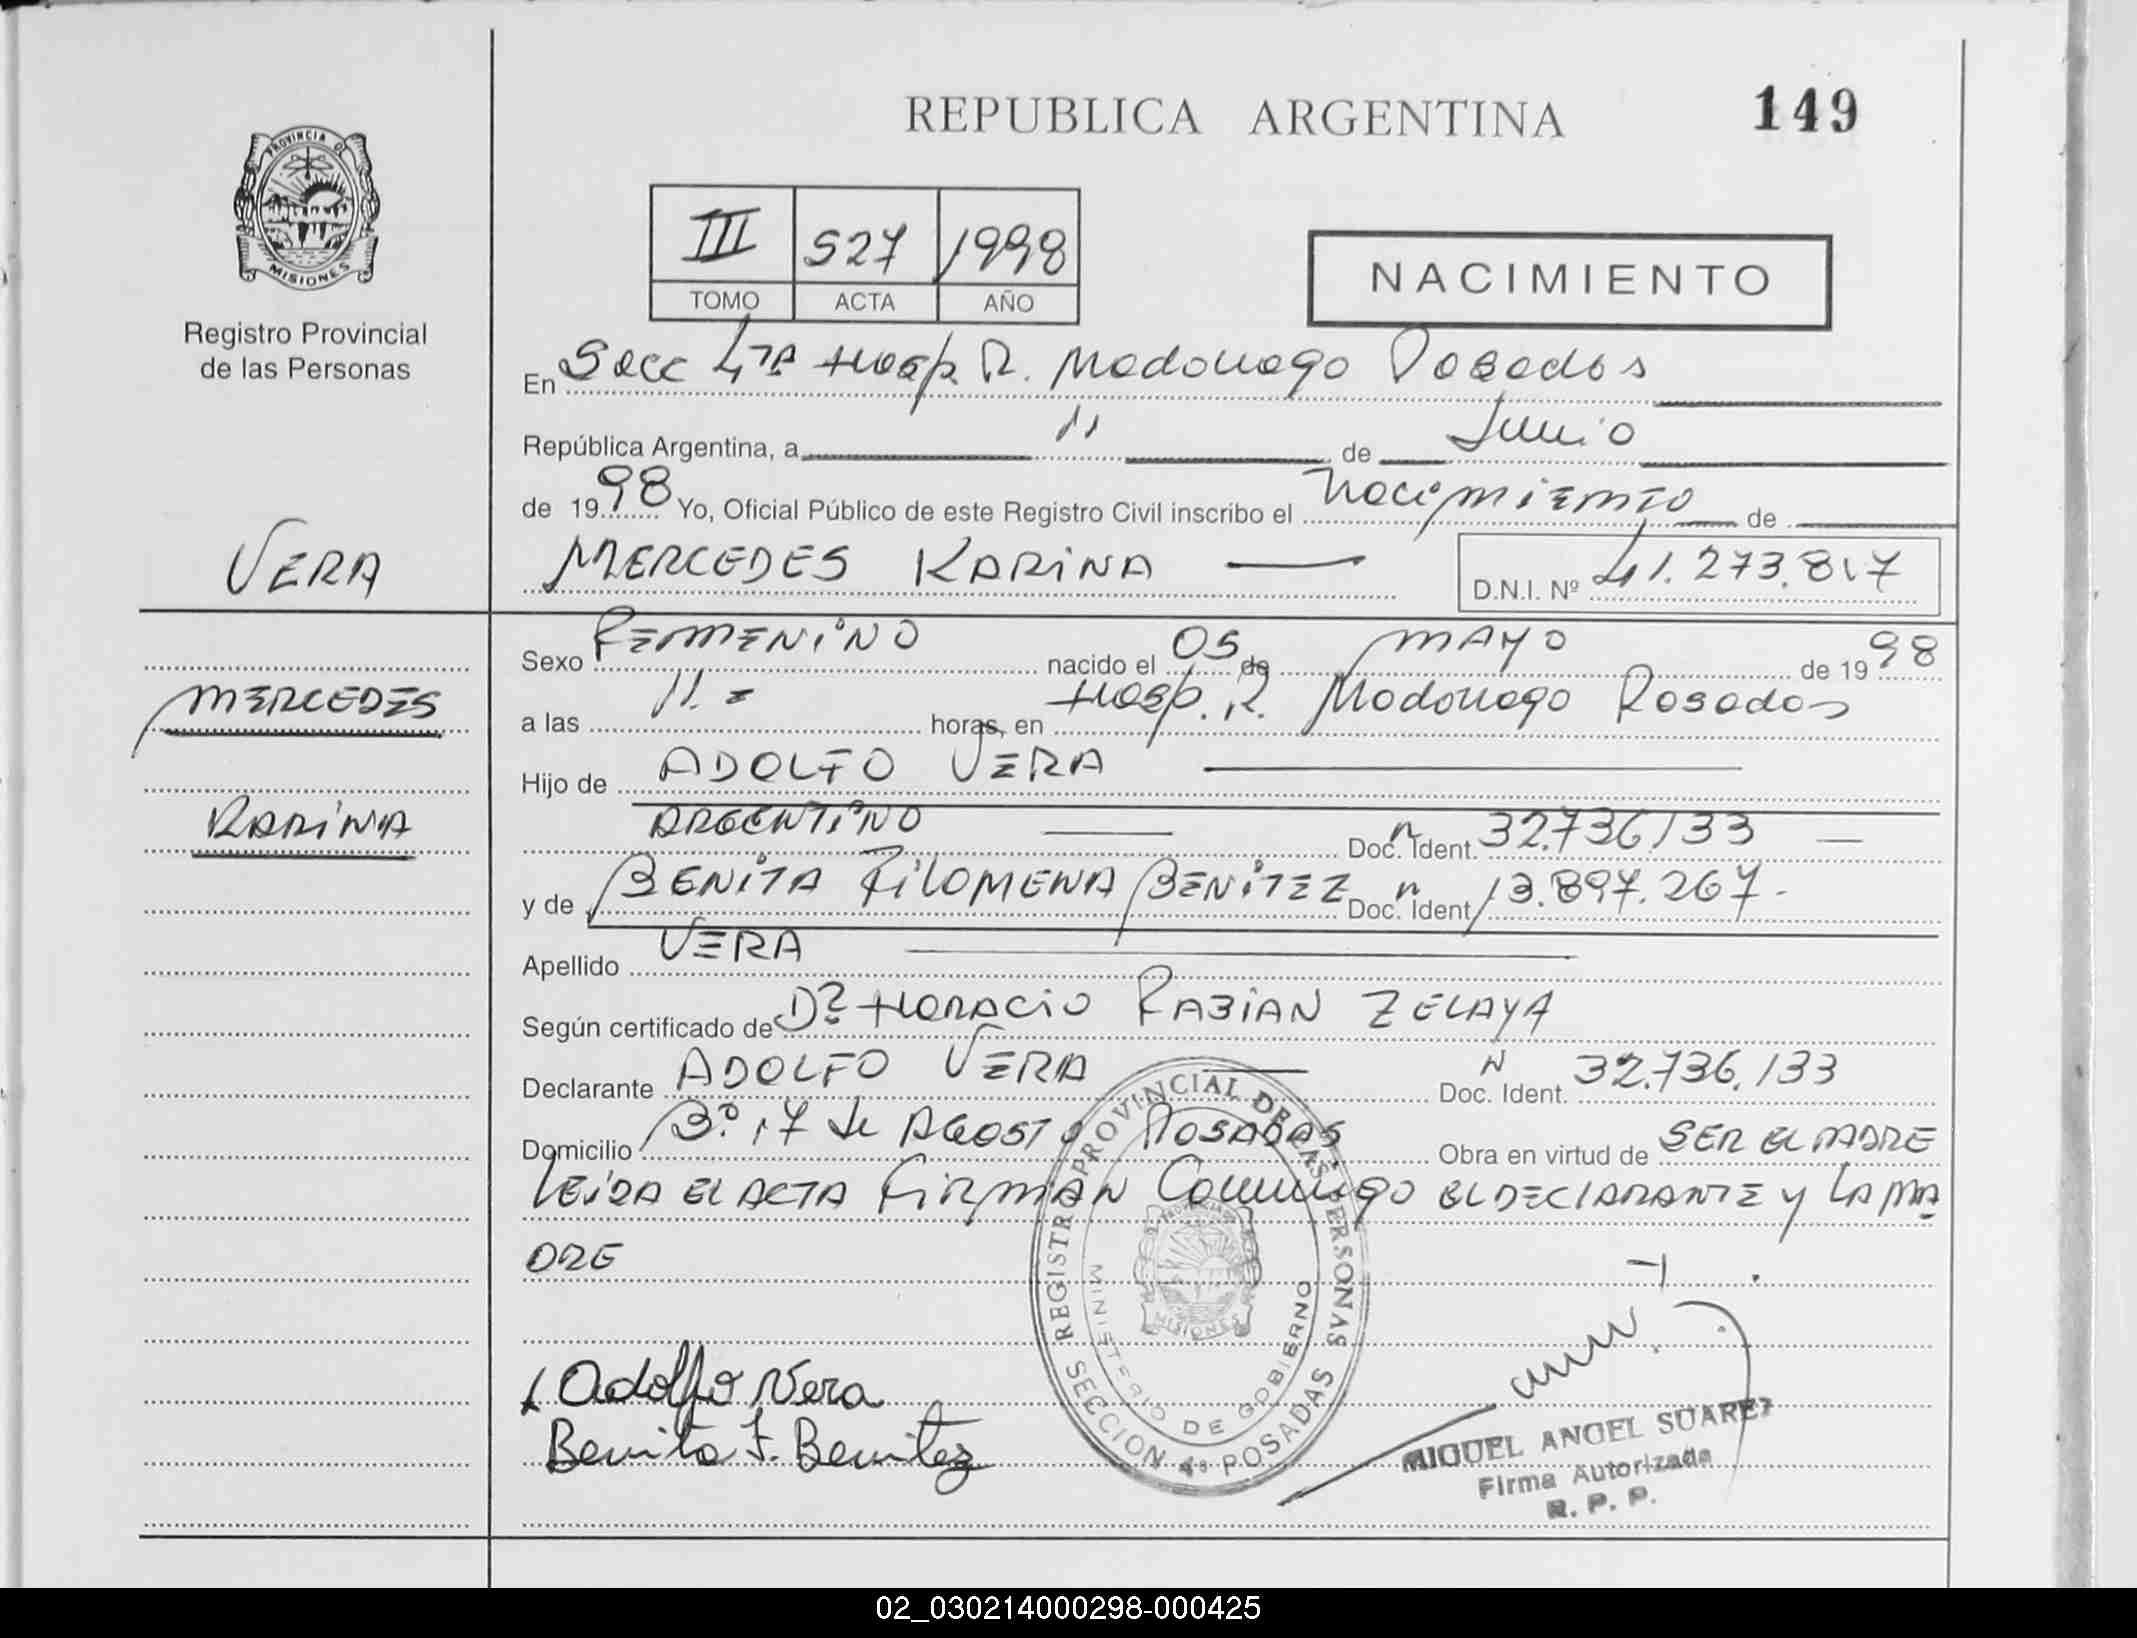 REPUBLICA ARGENTINA
149
PROVINCIA DE
MISIONES
Registro Provincial
de las Personas
III 527 1998
TOMO ACTA AÑO
NACIMIENTO
En Secc 4ta Hosp. R. Madariaga Posadas
República Argentina, a 11 de Junio
de 1998 Yo, Oficial Público de este Registro Civil inscribo el nacimiento de
VERA
MERCEDES KARINA D.N.I. Nº 41.273.817
Sexo FEMENINO nacido el 05 de MAYO de 1998
MERCEDES
a las 11.= horas, en Hosp. R. Madariaga Posadas
Hijo de ADOLFO VERA
KARINA
ARGENTINO Doc. Ident. N 32.736133
y de BENITA FILOMENA BENITEZ Doc. Ident. N 13.897.267.-
Apellido VERA
Según certificado de Dr HORACIO FABIAN ZELAYA
Declarante ADOLFO VERA Doc. Ident. N 32.736.133
Domicilio Bº 17 de AGOSTO POSADAS Obra en virtud de SER EL PADRE
LEIDA EL ACTA FIRMAN Conmigo EL DECLARANTE Y LA MA
DRE
REGISTRO PROVINCIAL DE LAS PERSONAS
MINISTERIO DE GOBIERNO
MISIONES
SECCION 4ª POSADAS
Adolfo Vera
Benita F. Benitez
MIGUEL ANGEL SUAREZ
Firma Autorizada
R. P. P.
02_030214000298-000425